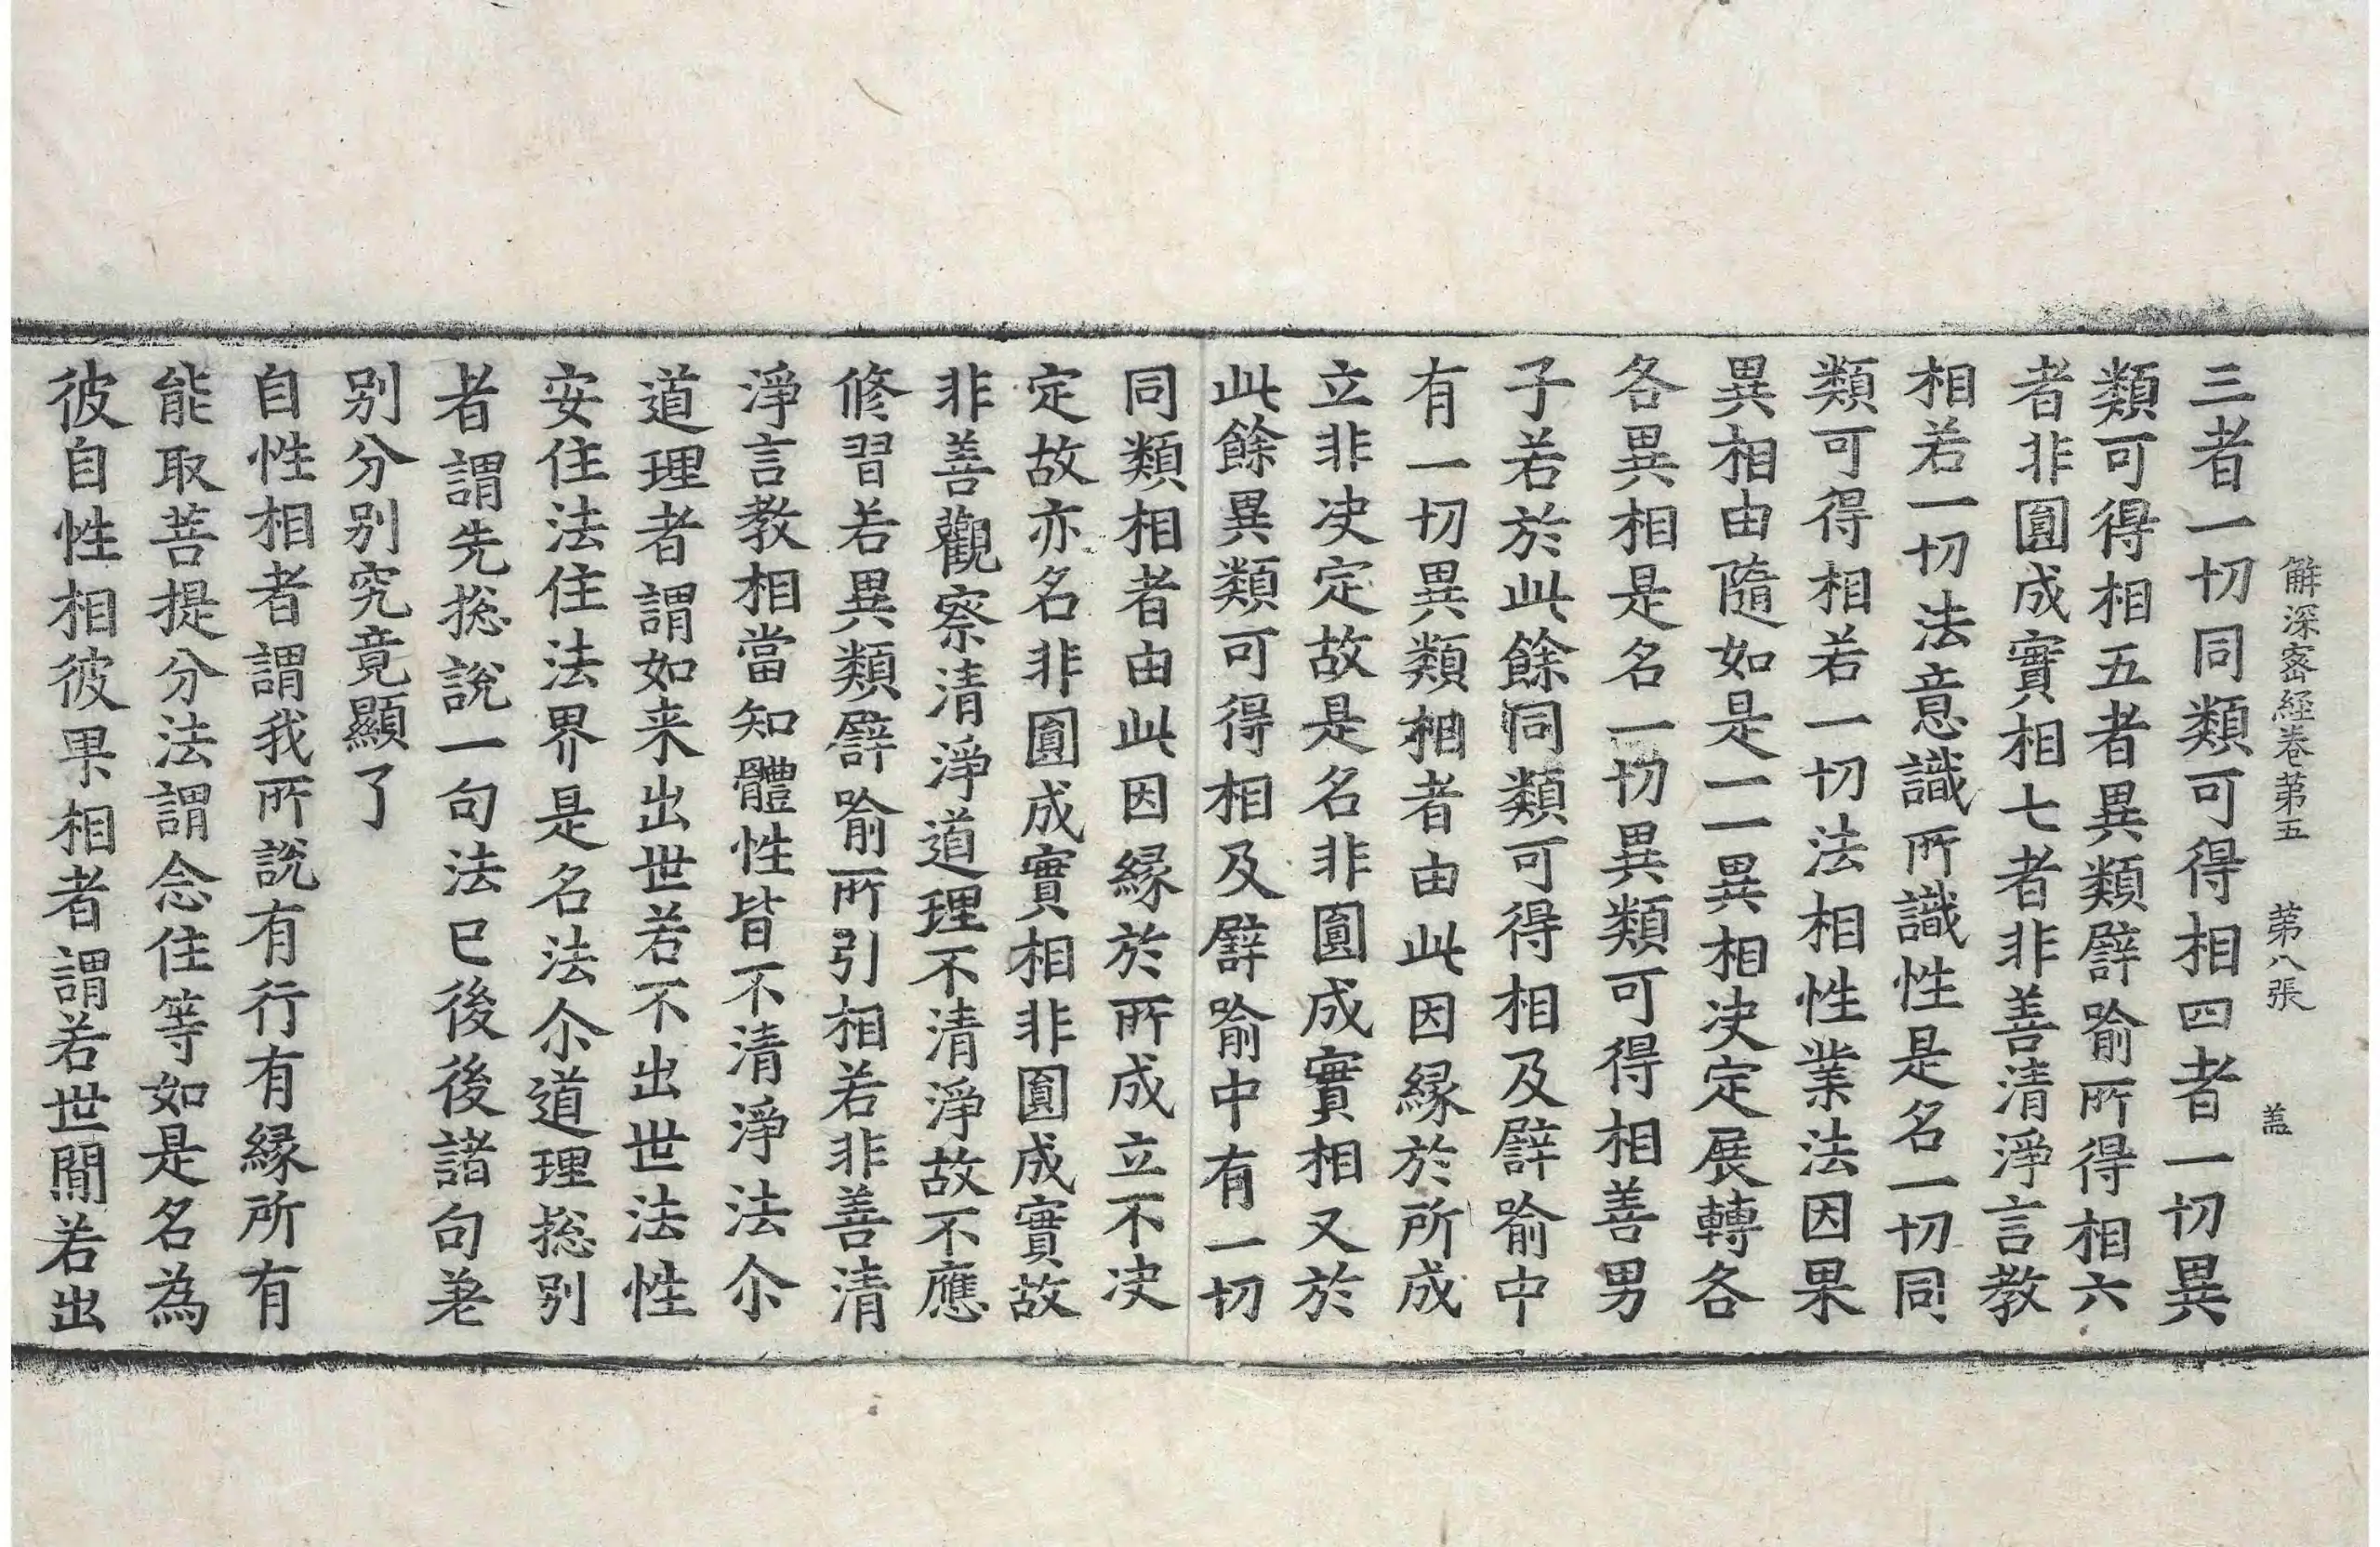 解深密經卷第五 第八張 盖
三者一切同類可得相四者一切異
類可得相五者異類譬喻所得相六
者非圓成實相七者非善清淨言教
相若一切法意識所識性是名一切同
類可得相若一切法相性業法因果
異相由隨如是一一異相决定展轉各
各異相是名一切異類可得相善男
子若於此餘同類可得相及譬喻中
有一切異類相者由此因緣於所成
立非决定故是名非圓成實相又於
此餘異類可得相及譬喻中有一切
同類相者由此因緣於所成立不决
定故亦名非圓成實相非圓成實故
非善觀察清淨道理不清淨故不應
修習若異類譬喻所引相若非善清
淨言教相當知體性皆不清淨法尒
道理者謂如来出世若不出世法性
安住法住法界是名法尒道理捴別
者謂先捴說一句法已後後諸句差
別分別究竟顯了
自性相者謂我所說有行有緣所有
能取菩提分法謂念住等如是名為
彼自性相彼果相者謂若世間若出